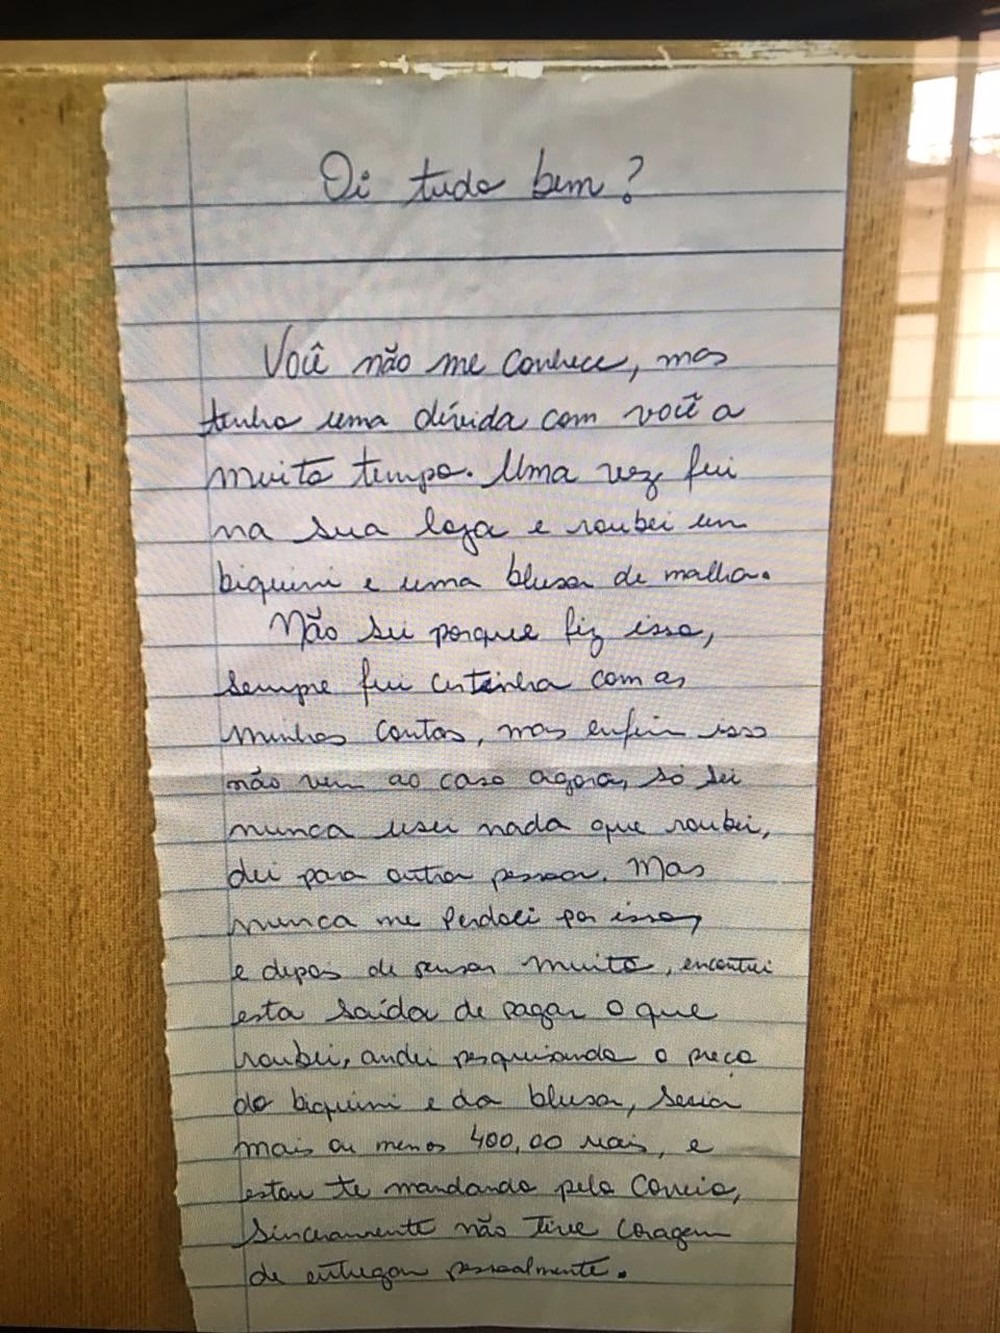 Oi tudo bem?
Você não me conhece, mas
tenho uma dívida com você a
muito tempo. Uma vez fui
na sua loja e roubei um
biquini e uma blusa de malha.
Não sei porque fiz isso,
sempre fui certinha com as
minhas contas, mas enfim isso
não vem ao caso agora, só sei
nunca usei nada que roubei,
dei para outra pessoa. Mas
nunca me perdoei por isso,
e depois de pensar muito, encontrei
esta saída de pagar o que
roubei, andei pesquisando o preço
do biquini e da blusa, seria
mais ou menos 400,00 reais, e
estou te mandando pelo Correio,
Sinceramente não tive coragem
de entregar pessoalmente.